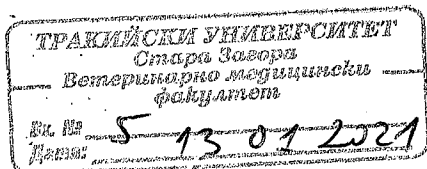 ТРАКИЙСКИ УНИВЕРСИТЕТ
Стара Загора
Ветеринарно медицински
факултет
Вх. №
Дата: 5 13 01 2021